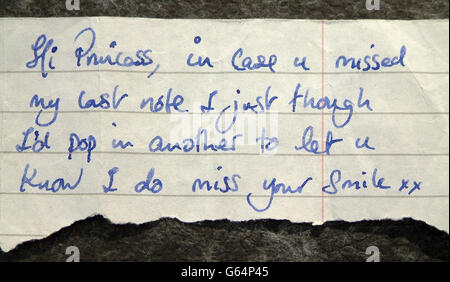 Hi Princess, in case u missed
my last note I just though
I'd pop in another to let u
know I do miss your smile xx
a
alamy
Image ID: G64P45
www.alamy.com